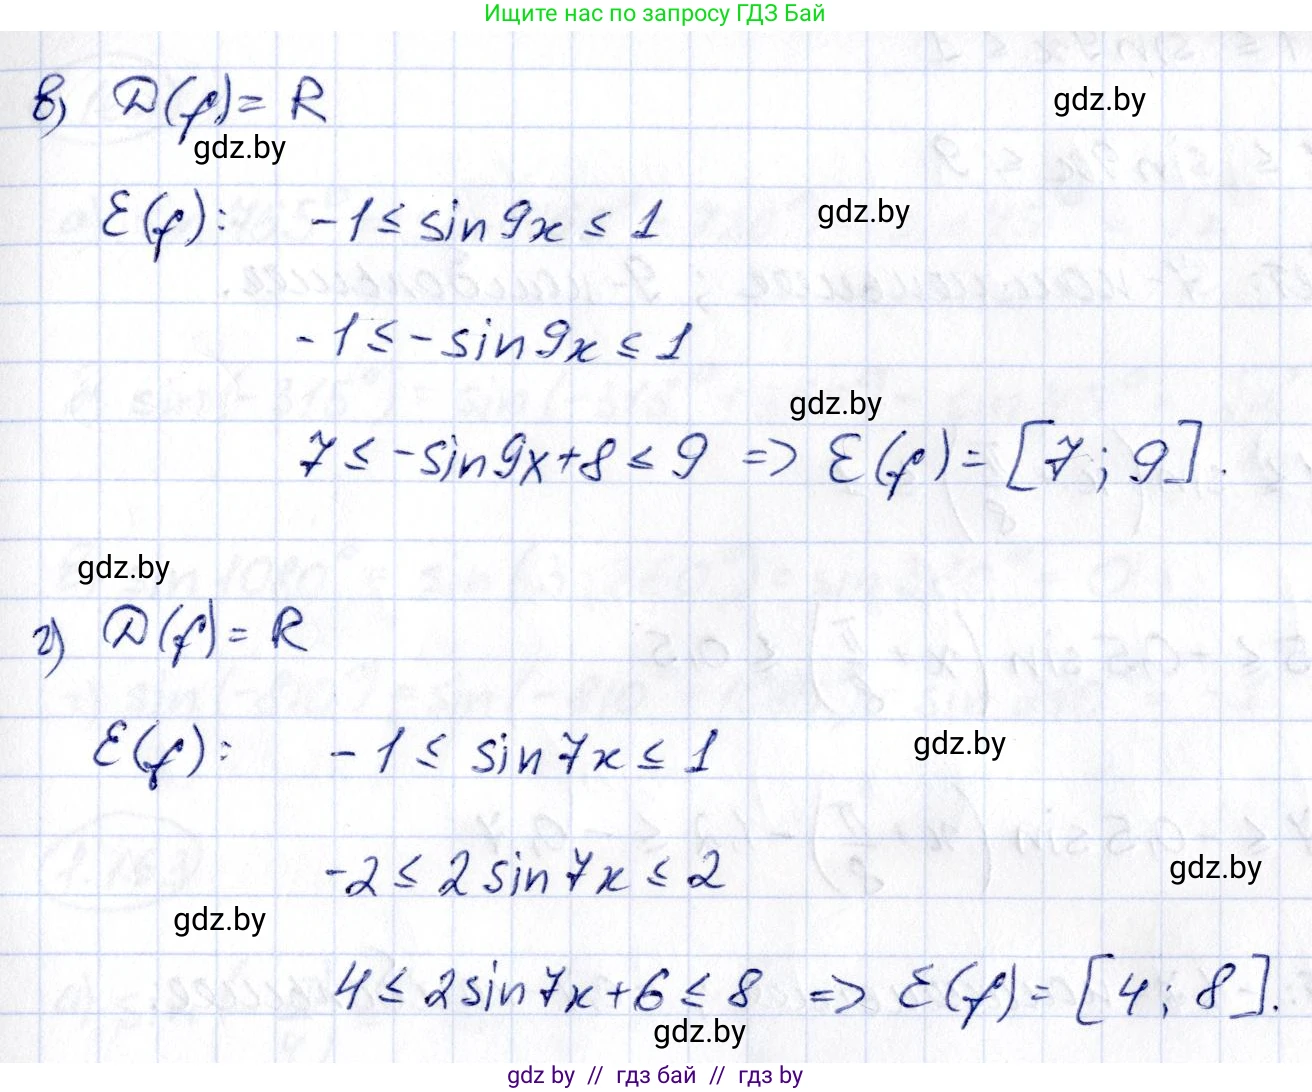 Ищите нас по запросу ГДЗ Бай
в) D(f) = R
gdz.by
gdz.by
E(f): -1 ≤ sin 9x ≤ 1
gdz.by
-1 ≤ -sin 9x ≤ 1
gdz.by
7 ≤ -sin 9x + 8 ≤ 9 => E(f) = [7; 9].
gdz.by
г) D(f) = R
E(f): -1 ≤ sin 7x ≤ 1
gdz.by
-2 ≤ 2 sin 7x ≤ 2
gdz.by
gdz.by
4 ≤ 2 sin 7x + 6 ≤ 8 => E(f) = [4; 8].
gdz.by
gdz by // гдз бай // гдз by